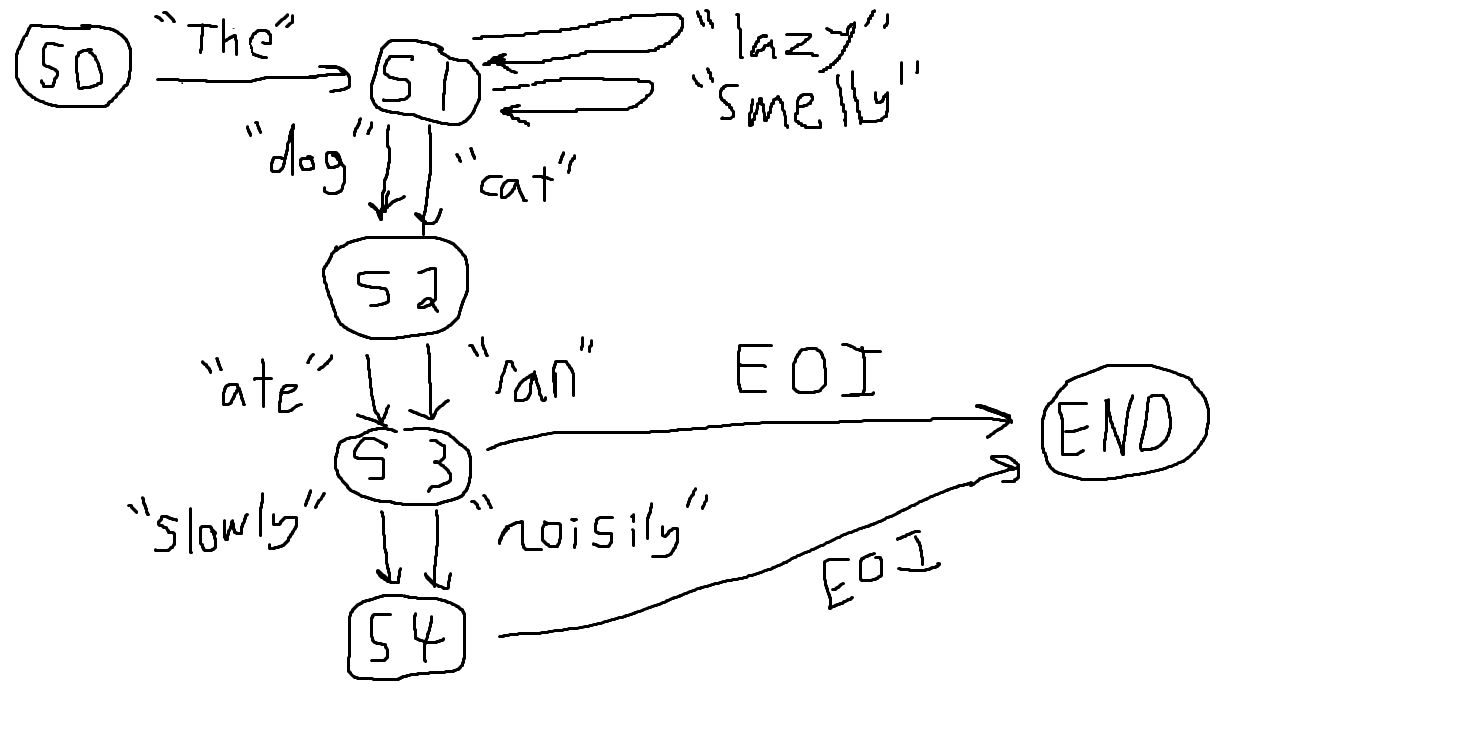 S0 "The" S1 "lazy"
"smelly"
"dog" "cat"
S2
"ate" "ran" EOI
S3 END
"slowly" "noisily"
EOI
S4